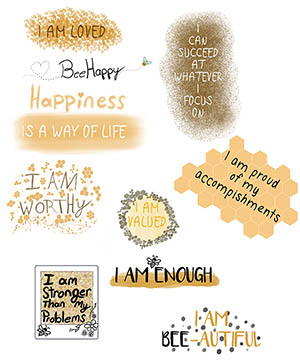 I AM LOVED
BeeHappy
Happiness
IS A WAY OF LIFE
I
CAN
SUCCEED
AT
WHATEVER
I
FOCUS
ON
I AM
WORTHY
I AM
VALUED
I am proud
of my
accomplishments
I am
Stronger
Than My
Problems
I AM ENOUGH
I AM
BEE-AUTIFUL